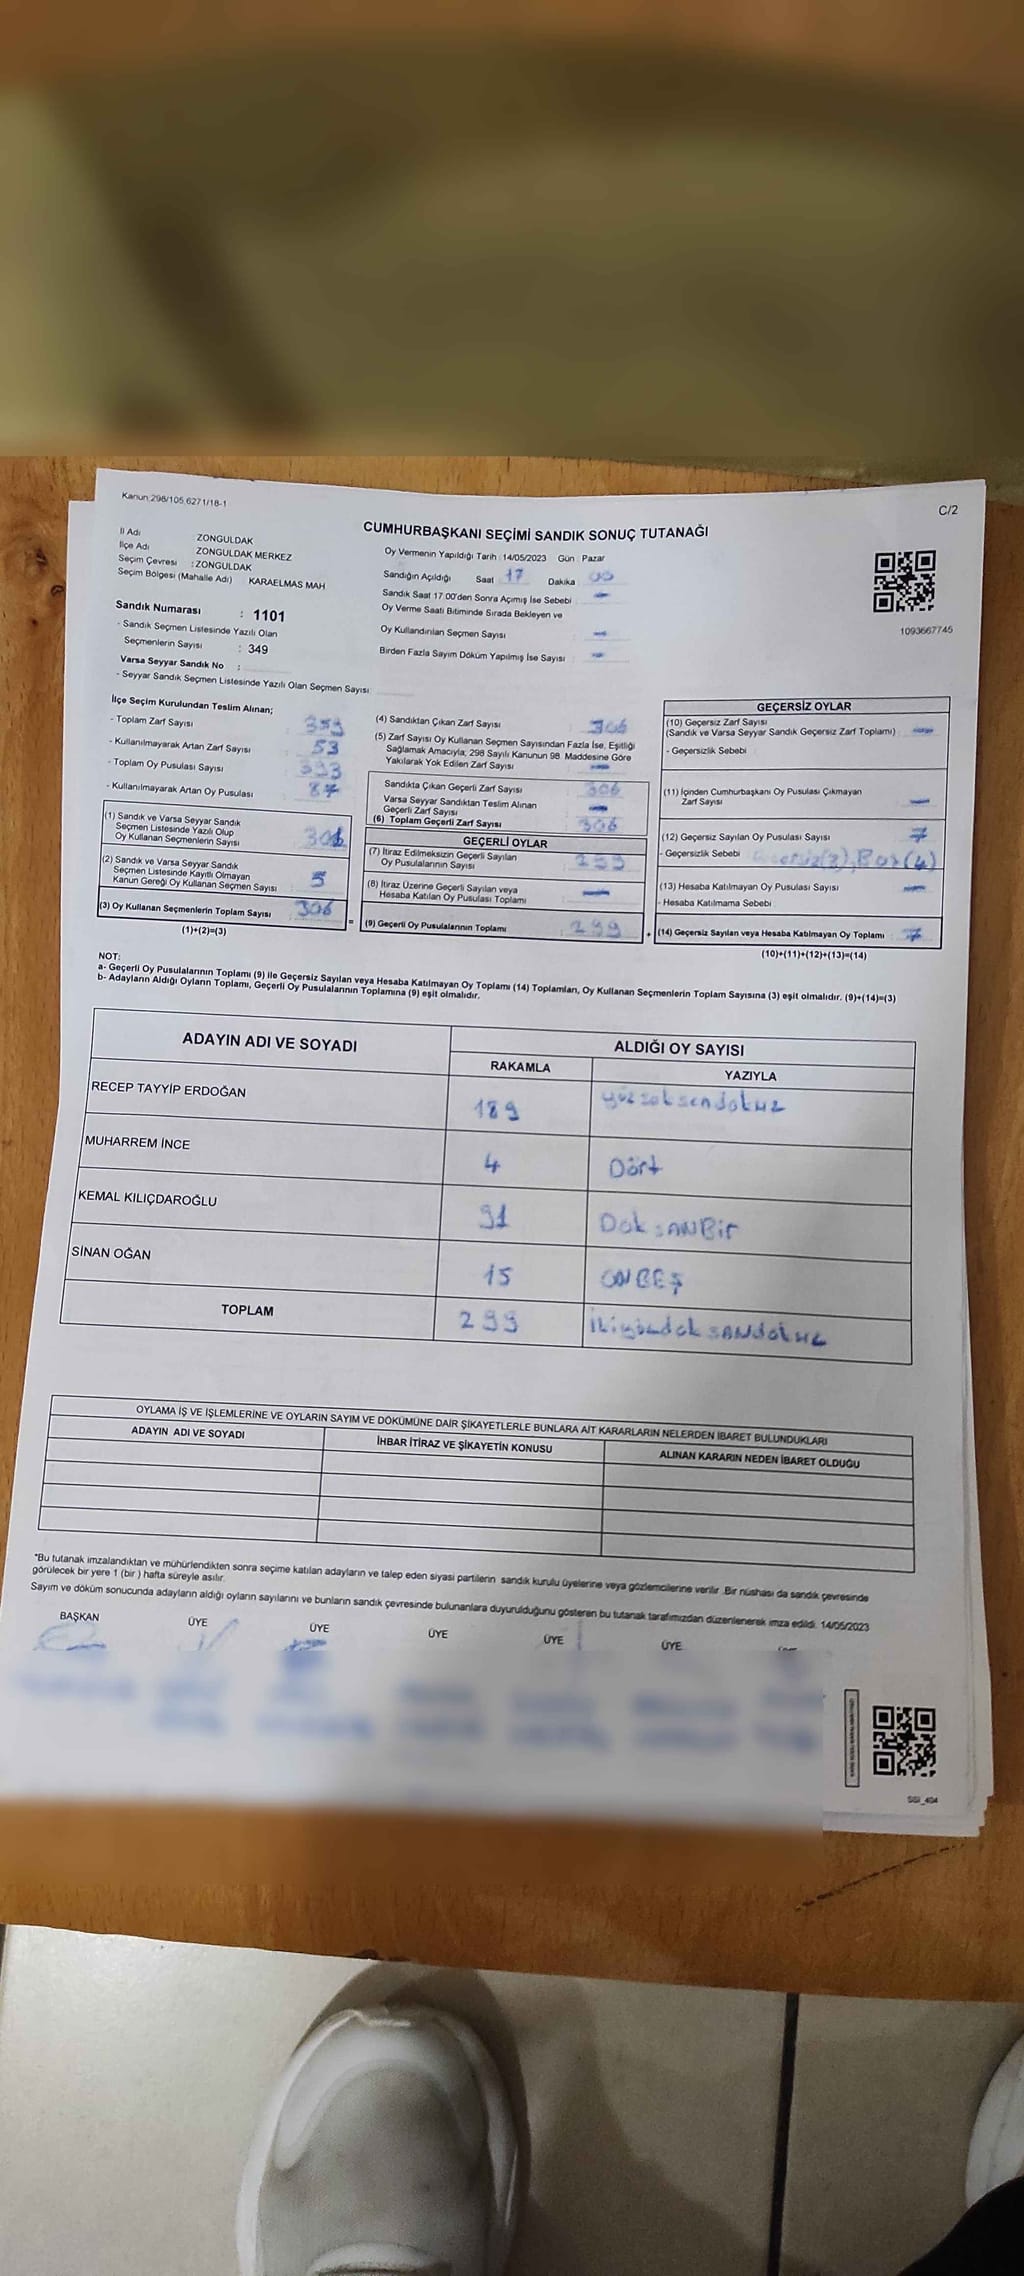 Kanun:298/105,6271/18-1
C/2
CUMHURBAŞKANI SEÇİMİ SANDIK SONUÇ TUTANAĞI
İl Adı ZONGULDAK
İlçe Adı ZONGULDAK MERKEZ
Seçim Çevresi :ZONGULDAK
Seçim Bölgesi (Mahalle Adı) KARAELMAS MAH
Oy Vermenin Yapıldığı Tarih : 14/05/2023 Gün : Pazar
Sandığın Açıldığı Saat 17 Dakika 00
Sandık Saat 17.00'den Sonra Açımış İse Sebebi : -
Oy Verme Saati Bitiminde Sırada Bekleyen ve
Oy Kullandırılan Seçmen Sayısı : -
Birden Fazla Sayım Döküm Yapılmış İse Sayısı : -
1093667745
Sandık Numarası : 1101
- Sandık Seçmen Listesinde Yazılı Olan
Seçmenlerin Sayısı : 349
Varsa Seyyar Sandık No :
- Seyyar Sandık Seçmen Listesinde Yazılı Olan Seçmen Sayısı:
İlçe Seçim Kurulundan Teslim Alınan;
- Toplam Zarf Sayısı 359
- Kullanılmayarak Artan Zarf Sayısı 53
- Toplam Oy Pusulası Sayısı 393
- Kullanılmayarak Artan Oy Pusulası 87
(1) Sandık ve Varsa Seyyar Sandık
Seçmen Listesinde Yazılı Olup
Oy Kullanan Seçmenlerin Sayısı 301
(2) Sandık ve Varsa Seyyar Sandık
Seçmen Listesinde Kayıtlı Olmayan
Kanun Gereği Oy Kullanan Seçmen Sayısı 5
(3) Oy Kullanan Seçmenlerin Toplam Sayısı 306
(1)+(2)=(3)
(4) Sandıktan Çıkan Zarf Sayısı 306
(5) Zarf Sayısı Oy Kullanan Seçmen Sayısından Fazla İse, Eşitliği
Sağlamak Amacıyla; 298 Sayılı Kanunun 98. Maddesine Göre
Yakılarak Yok Edilen Zarf Sayısı -
Sandıkta Çıkan Geçerli Zarf Sayısı 306
Varsa Seyyar Sandıktan Teslim Alınan
Geçerli Zarf Sayısı -
(6) Toplam Geçerli Zarf Sayısı 306
GEÇERLİ OYLAR
(7) İtiraz Edilmeksizin Geçerli Sayılan
Oy Pusulalarının Sayısı 299
(8) İtiraz Üzerine Geçerli Sayılan veya
Hesaba Katılan Oy Pusulası Toplamı -
= (9) Geçerli Oy Pusulalarının Toplamı : 299 +
GEÇERSİZ OYLAR
(10) Geçersiz Zarf Sayısı
(Sandık ve Varsa Seyyar Sandık Geçersiz Zarf Toplamı) -
- Geçersizlik Sebebi
(11) İçinden Cumhurbaşkanı Oy Pusulası Çıkmayan
Zarf Sayısı -
(12) Geçersiz Sayılan Oy Pusulası Sayısı 7
- Geçersizlik Sebebi Geçersiz(3), Boş(4)
(13) Hesaba Katılmayan Oy Pusulası Sayısı -
- Hesaba Katılmama Sebebi
(14) Geçersiz Sayılan veya Hesaba Katılmayan Oy Toplamı : 7
(10)+(11)+(12)+(13)=(14)
NOT:
a- Geçerli Oy Pusulalarının Toplamı (9) ile Geçersiz Sayılan veya Hesaba Katılmayan Oy Toplamı (14) Toplamları, Oy Kullanan Seçmenlerin Toplam Sayısına (3) eşit olmalıdır. (9)+(14)=(3)
b- Adayların Aldığı Oyların Toplamı, Geçerli Oy Pusulalarının Toplamına (9) eşit olmalıdır.
ADAYIN ADI VE SOYADI ALDIĞI OY SAYISI
RAKAMLA YAZIYLA
RECEP TAYYİP ERDOĞAN 189 yüzseksendokuz
MUHARREM İNCE 4 Dört
KEMAL KILIÇDAROĞLU 91 DoksANBir
SİNAN OĞAN 15 ONBEŞ
TOPLAM 299 ikiyüzdoksANdokuz
OYLAMA İŞ VE İŞLEMLERİNE VE OYLARIN SAYIM VE DÖKÜMÜNE DAİR ŞİKAYETLERLE BUNLARA AİT KARARLARIN NELERDEN İBARET BULUNDUKLARI
ADAYIN ADI VE SOYADI İHBAR İTİRAZ VE ŞİKAYETİN KONUSU ALINAN KARARIN NEDEN İBARET OLDUĞU
*Bu tutanak imzalandıktan ve mühürlendikten sonra seçime katılan adayların ve talep eden siyasi partilerin sandık kurulu üyelerine veya gözlemcilerine verilir. Bir nüshası da sandık çevresinde
görülecek bir yere 1 (bir) hafta süreyle asılır.
Sayım ve döküm sonucunda adayların aldığı oyların sayılarını ve bunların sandık çevresinde bulunanlara duyurulduğunu gösteren bu tutanak tarafımızdan düzenlenerek imza edildi. 14/05/2023
BAŞKAN ÜYE ÜYE ÜYE ÜYE ÜYE
SSİ_404